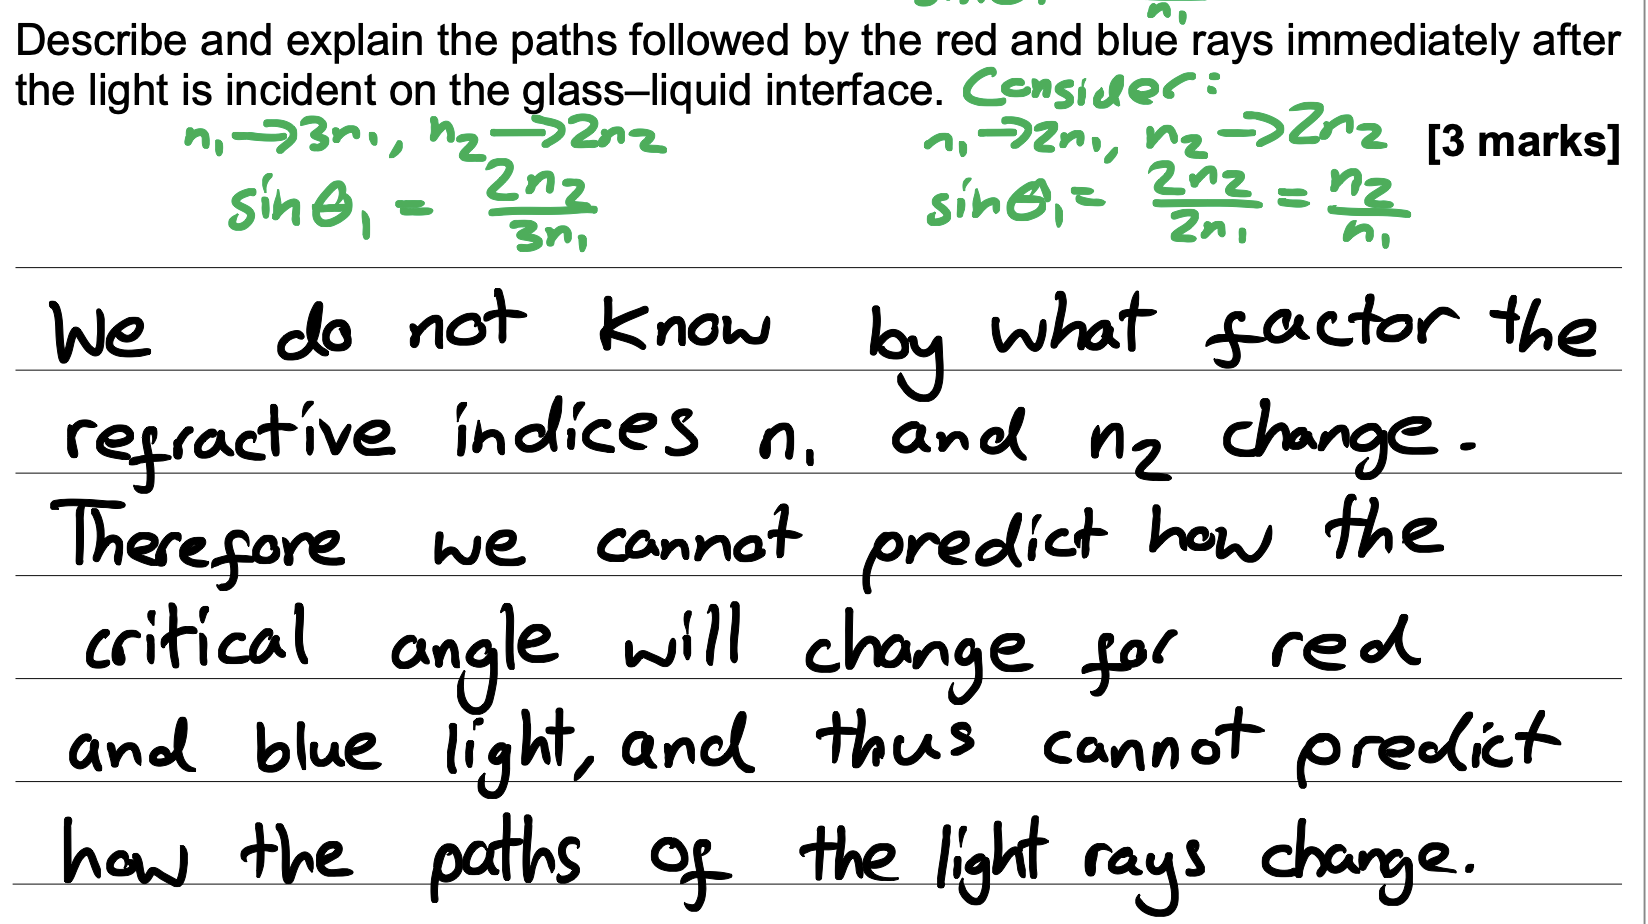 Describe and explain the paths followed by the red and blue rays immediately after
the light is incident on the glass–liquid interface. Consider:
n₁→3n₁, n₂→2n₂ n₁→2n₁, n₂→2n₂ [3 marks]
sinθ₁ = 2n₂/3n₁ sinθ₁ = 2n₂/2n₁ = n₂/n₁
We do not know by what factor the
refractive indices n₁ and n₂ change.
Therefore we cannot predict how the
critical angle will change for red
and blue light, and thus cannot predict
how the paths of the light rays change.